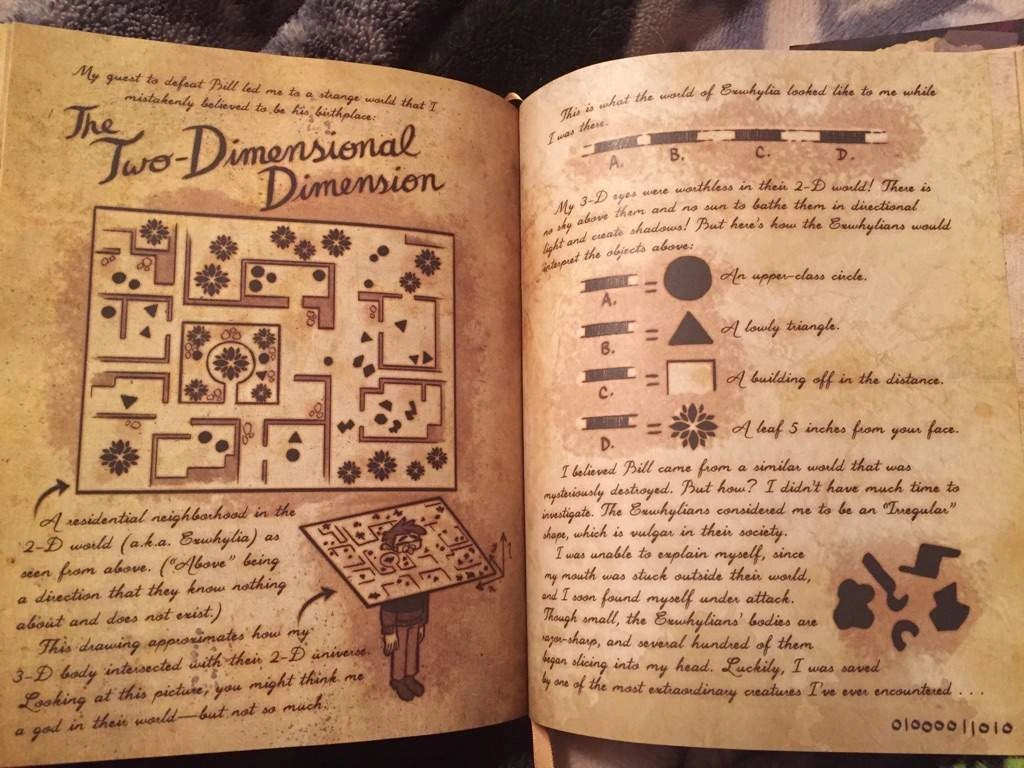 My quest to defeat Bill led me to a strange world that I
mistakenly believed to be his birthplace:
The
Two-Dimensional
Dimension
A residential neighborhood in the
2-D world (a.k.a. Exwhylia) as
seen from above. ("Above" being
a direction that they know nothing
about and does not exist.)
This drawing approximates how my
3-D body intersected with their 2-D universe.
Looking at this picture, you might think me
a god in their world—but not so much.
This is what the world of Exwhylia looked like to me while
I was there.
A. B. C. D.
My 3-D eyes were worthless in their 2-D world! There is
no sky above them and no sun to bathe them in directional
light and create shadows! But here's how the Exwhylians would
interpret the objects above:
A. = An upper-class circle.
B. = A lowly triangle.
C. = A building off in the distance.
D. = A leaf 5 inches from your face.
I believed Bill came from a similar world that was
mysteriously destroyed. But how? I didn't have much time to
investigate. The Exwhylians considered me to be an "Irregular"
shape, which is vulgar in their society.
I was unable to explain myself, since
my mouth was stuck outside their world,
and I soon found myself under attack.
Though small, the Exwhylians' bodies are
razor-sharp, and several hundred of them
began slicing into my head. Luckily, I was saved
by one of the most extraordinary creatures I've ever encountered . . .
01000011010